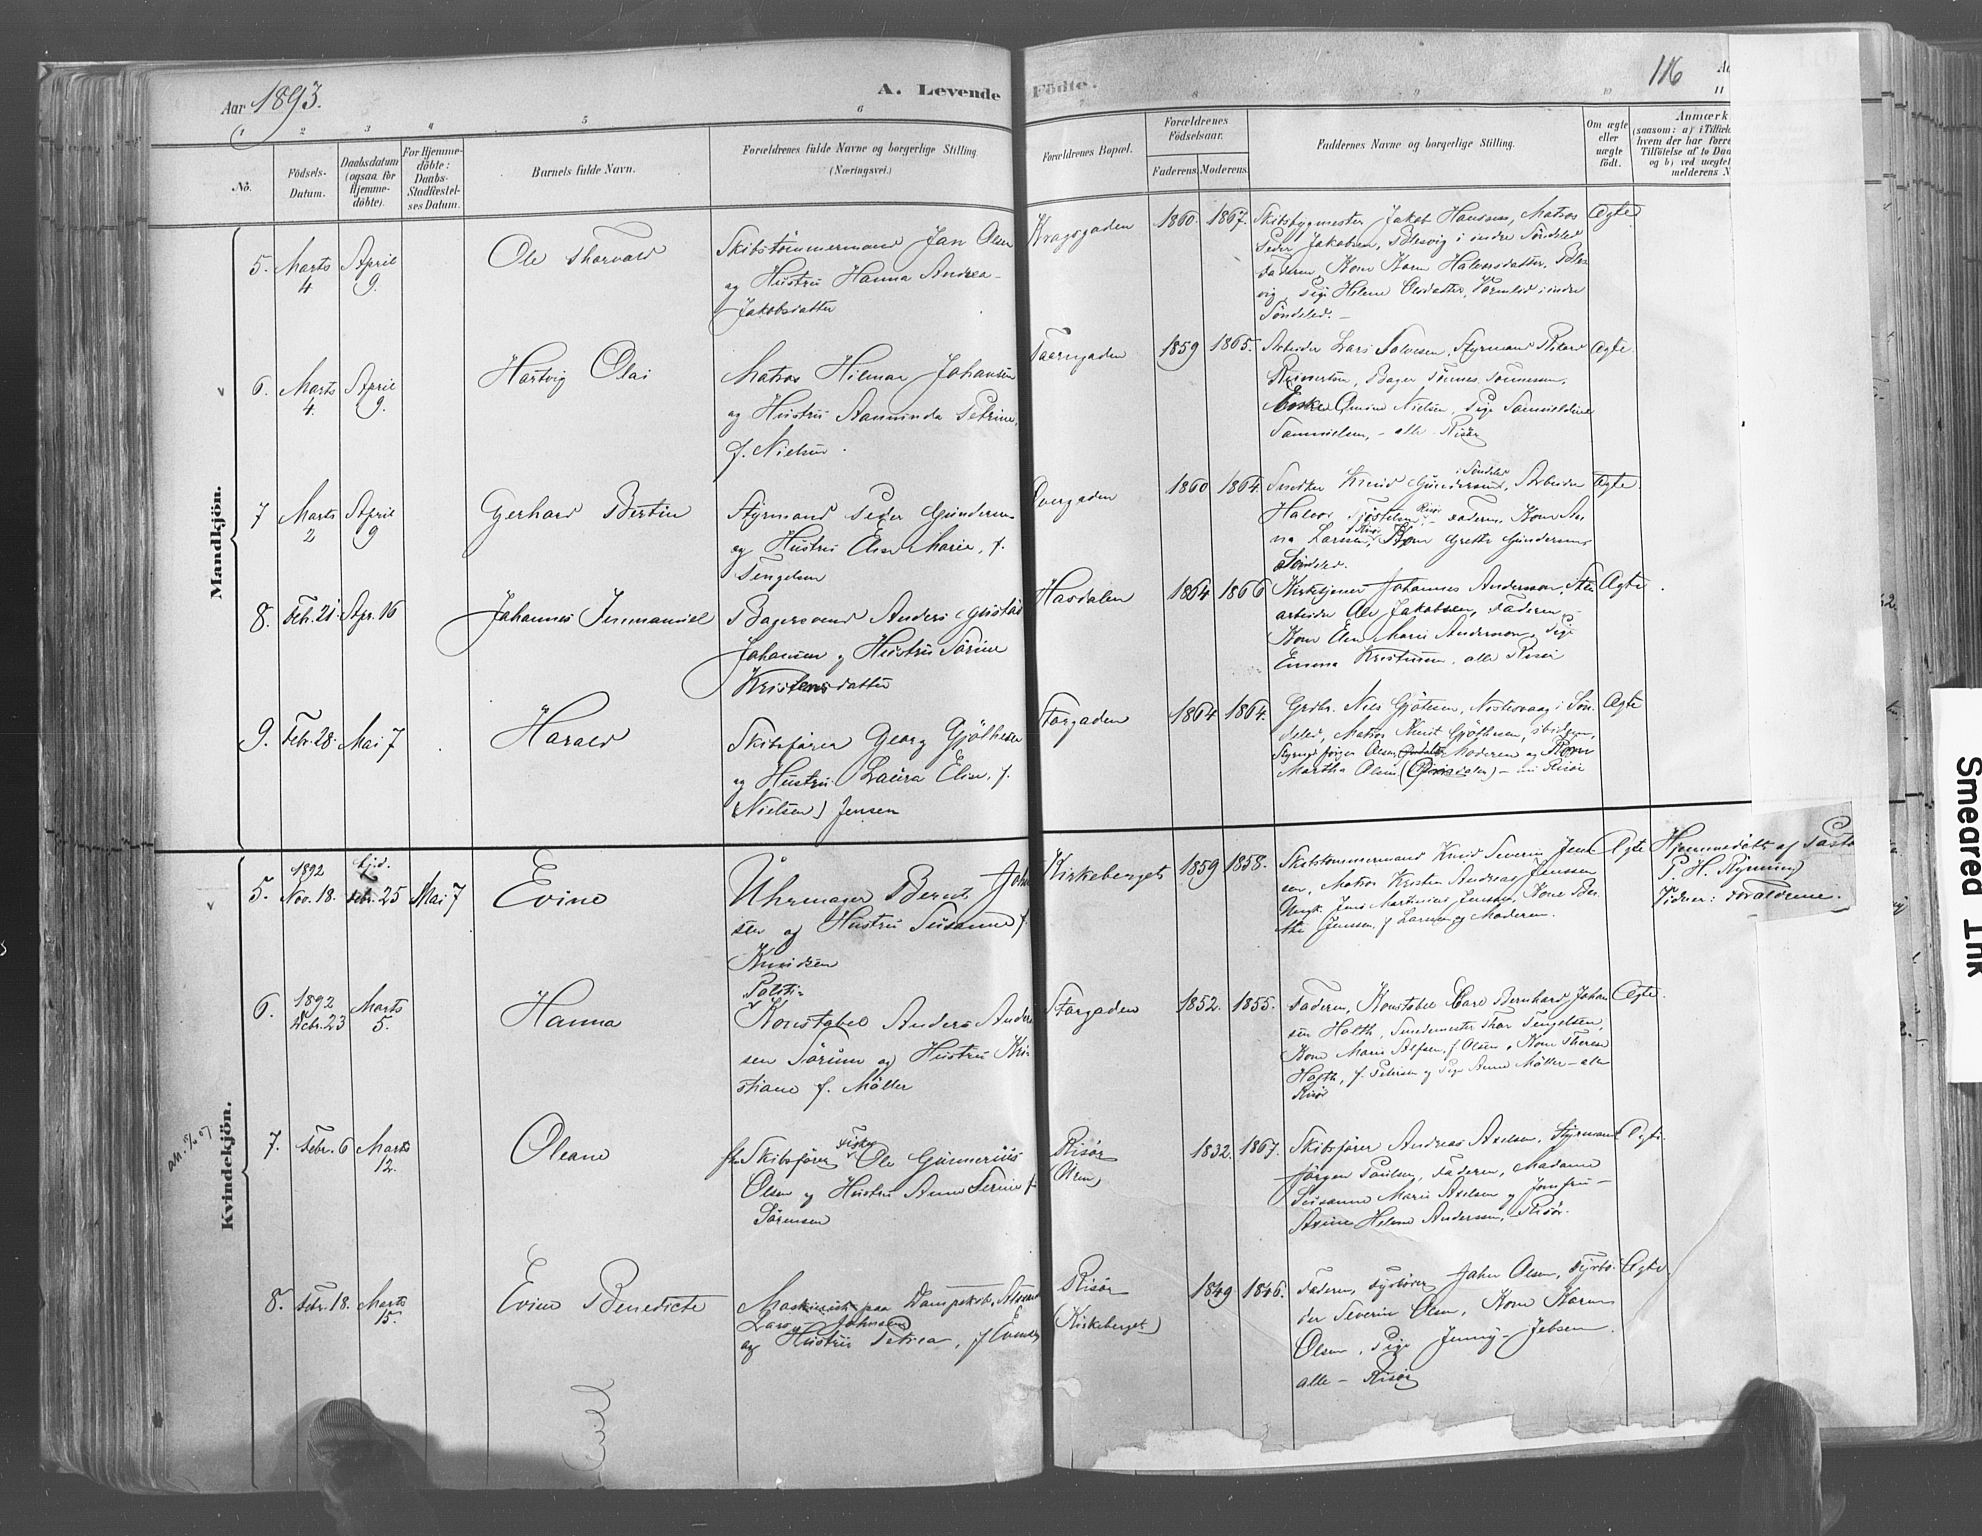 Aar 1893.
A. Levende Födte.
116
1 2 3 4 5 6 7 8 9 10 11
No.
Födsels-
Datum.
Daabsdatum
(ogsaa for
Hjemme-
döbte).
For Hjemme-
döbte:
Daabs-
Stadfæstel-
ses Datum.
Barnets fulde Navn.
Forældrenes fulde Navne og borgerlige Stilling.
(Næringsvei.)
Forældrenes Bopæl.
Forældrenes
Födselsaar.
Faderens. Moderens.
Faddernes Navne og borgerlige Stilling.
Om ægte
eller
uægte
födt.
Anmærk
(saasom: a) i Tilfæld
hvem der har forre
Tilföielse af to Daa
og b) ved uægte
melderens N
Mandkjön.
5. Marts
4
April
9.
Ole Thorvald
Skibstömmermand Jan Olsen
og Hustru Hanna Andrea
Jakobsdatter
Kragsgaden
1860. 1867.
Skibsbygmester Jakob Hansen, Matros
Peder Jakobsen, Blesvig i indre Söndeled
Faderen, Kone Karen Halvorsdatter, Bles
vig, Pige Helene Olsdatter, i indre
Söndeled. –
Ægte
6. Marts
4.
April
9.
Hartvig Olai
Matros Hilmar Johansen
og Hustru Aamunda Petrine,
f. Nielsen.
Taarngaden
1859 1865.
Arbeider Lars Salvesen, Styrmand Rikard
Reinertsen, Bager Tönnes Tönnesen,
Enske Amine Nielsen, Pige
Samuelsen, – alle Risör
Ægte
7 Marts
2
April
9
Gerhard Bertin
Styrmand Peder Gundersen
og Hustru Elen Marie, f.
Tengelsen
Övergaden
1860 1864.
Snedker Knud Gundersen, i Söndeled, Arbeider
Halvor Risör – Faderen, Kone An
na Larsen, Risör, Kone Grethe Gundersen
Söndeled.
Ægte
8. Feb. 21. Apr. 16
Johannes Immanuel
Bagersvend Anders Gustav
Johansen og Hustru Sörine
Kristensdatter
Hasdalen
1864 1866
Kirketjener Johannes Anderson, Sten
arbeider Ole Jakobsen, Faderen –
Kone Elen Marie Anderson, Pige
Emma Kristensen, alle Risör
Ægte
9. Febr. 28. Mai 7
Harald
Skibsförer Georg Gjöthesen
og Hustru Laura Elise, f.
(Nielsen) Jensen
Storgaden
1864 1864.
Grdbr. Nils Gjötesen, i Sön-
deled, Matros Knut Gjöthesen, ibidem,
Jörgen Olsen, Moderen og Kone
Martha Olsen – Risör
Ægte
Kvindekjön.
5. 1892
Nov. 18.
Febr. 25 Mai 7
Evine
Uhrmager Bernt John
sen og Hustru Susanne f.
Knudsen
Kirkeberget
1859 1858.
Skibstömmermand Knud Severin Jens
sen, Matros Kristen Andreas Jenssen
Ungk. Jens Martinius Jenssen, Kone
Jenssen, f. Larsen og Moderen.
Ægte
Hjemmedöbt af Pastor
P. H. Rymund
Vidner: Forældrene.
6. 1892
Febr. 23
Marts
5.
Hanna
Politi-
Konstabel Anders Ander
sen Sörum og Hustru Kri
stiane f. Möller
Storgaden
1852. 1855.
Faderen, Konstabel Carl Bernhard Johan
sen Holth, Smedemester Thor Tengelsen,
Kone Maren Alfsen, f. Olsen, Kone Therese
Holth, f. Petersen og Pige Anna Möller – alle
Risör
Ægte.
7. Febr. 6 Marts
12.
Oleane
fh. Skibsförer Fisker Ole Gunnerius
Olsen og Hustru Anne Serine f.
Sörensen
Risör
1832. 1867.
Skibsförer Andreas Axelsen, Styrmand
Jörgen Paulsen, Faderen, Madame
Susanne Marie Axelsen og Jomfru
Helene Andersen, – Risör.
Ægte
8. Febr. 18. Marts
15.
Evine Benedicte
Maskinist paa Dampskib
Lars Johnsen
og Hustru Petrea, f.
Risör
(Kirkeberget)
1849 1846.
Faderen, Fyrböder Johan Olsen, Fyrbö
der Severin Olsen, Kone Karen
Olsen, Pige Jenny Jebsen
alle – Risör
Ægte
Smeared Ink